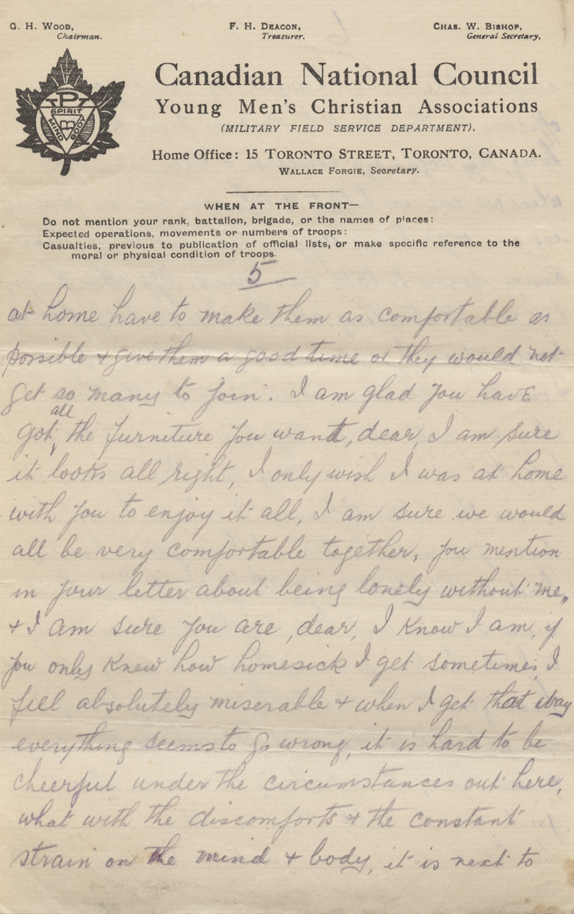 G. H. Wood, Chairman.
F. H. Deacon, Treasurer.
Chas. W. Bishop, General Secretary.
P
SPIRIT
MIND
BODY
Canadian National Council
Young Men's Christian Associations
(MILITARY FIELD SERVICE DEPARTMENT).
Home Office: 15 Toronto Street, Toronto, Canada.
Wallace Forgie, Secretary.
WHEN AT THE FRONT—
Do not mention your rank, battalion, brigade, or the names of places:
Expected operations, movements or numbers of troops:
Casualties, previous to publication of official lists, or make specific reference to the
moral or physical condition of troops.
5
at home have to make them as comfortable as
possible & give them a good time or they would not
get so many to join. I am glad you have
got all the furniture you want, dear, I am sure
it looks all right, I only wish I was at home
with you to enjoy it all, I am sure we would
all be very comfortable together, you mention
in your letter about being lonely without me,
& I am sure you are, dear, I know I am, if
you only knew how homesick I get sometimes I
feel absolutely miserable & when I get that way
everything seems to go wrong, it is hard to be
cheerful under the circumstances out here,
what with the discomforts & the constant
strain on the mind & body, it is next to